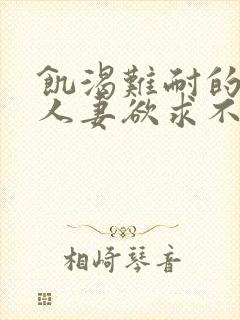 飢渴難耐的
人妻欲求不
相崎琴音